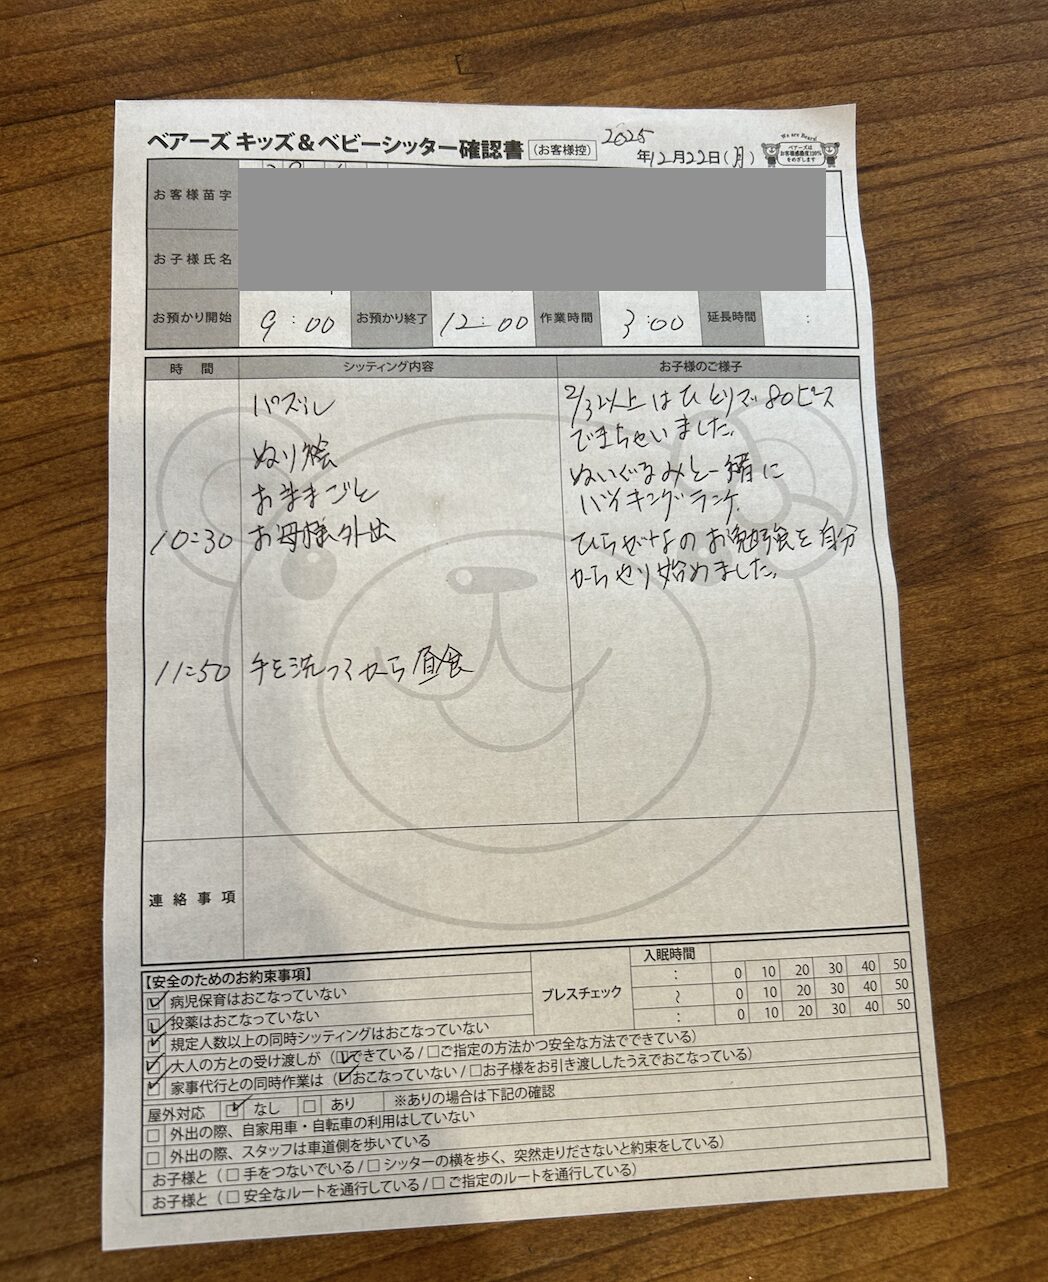 ベアーズ キッズ&ベビーシッター確認書 (お客様控) 2025年12月22日(月)
We are Bears!
ベアーズは
お客様感動度120%
をめざします
お客様苗字
お子様氏名
お預かり開始 9:00 お預かり終了 12:00 作業時間 3:00 延長時間 :
時 間 シッティング内容 お子様のご様子
パズル 2/3以上はひとりで80ピース
できちゃいました。
ぬり絵 ぬいぐるみと一緒に
おままごと バイキングランチ
10:30 お母様外出 ひらがなのお勉強を自分
からやり始めました。
11:50 手を洗ってから昼食
連絡事項
【安全のためのお約束事項】 ブレスチェック 入眠時間
: 0 10 20 30 40 50
〜 0 10 20 30 40 50
: 0 10 20 30 40 50
☑ 病児保育はおこなっていない
☑ 投薬はおこなっていない
☑ 規定人数以上の同時シッティングはおこなっていない
☑ 大人の方との受け渡しが (☑できている / □ご指定の方法かつ安全な方法でできている)
☑ 家事代行との同時作業は (☑おこなっていない / □お子様をお引き渡ししたうえでおこなっている)
屋外対応 ☑ なし □ あり ※ありの場合は下記の確認
□ 外出の際、自家用車・自転車の利用はしていない
□ 外出の際、スタッフは車道側を歩いている
お子様と (□ 手をつないでいる / □ シッターの横を歩く、突然走りださないと約束をしている)
お子様と (□ 安全なルートを通行している / □ ご指定のルートを通行している)